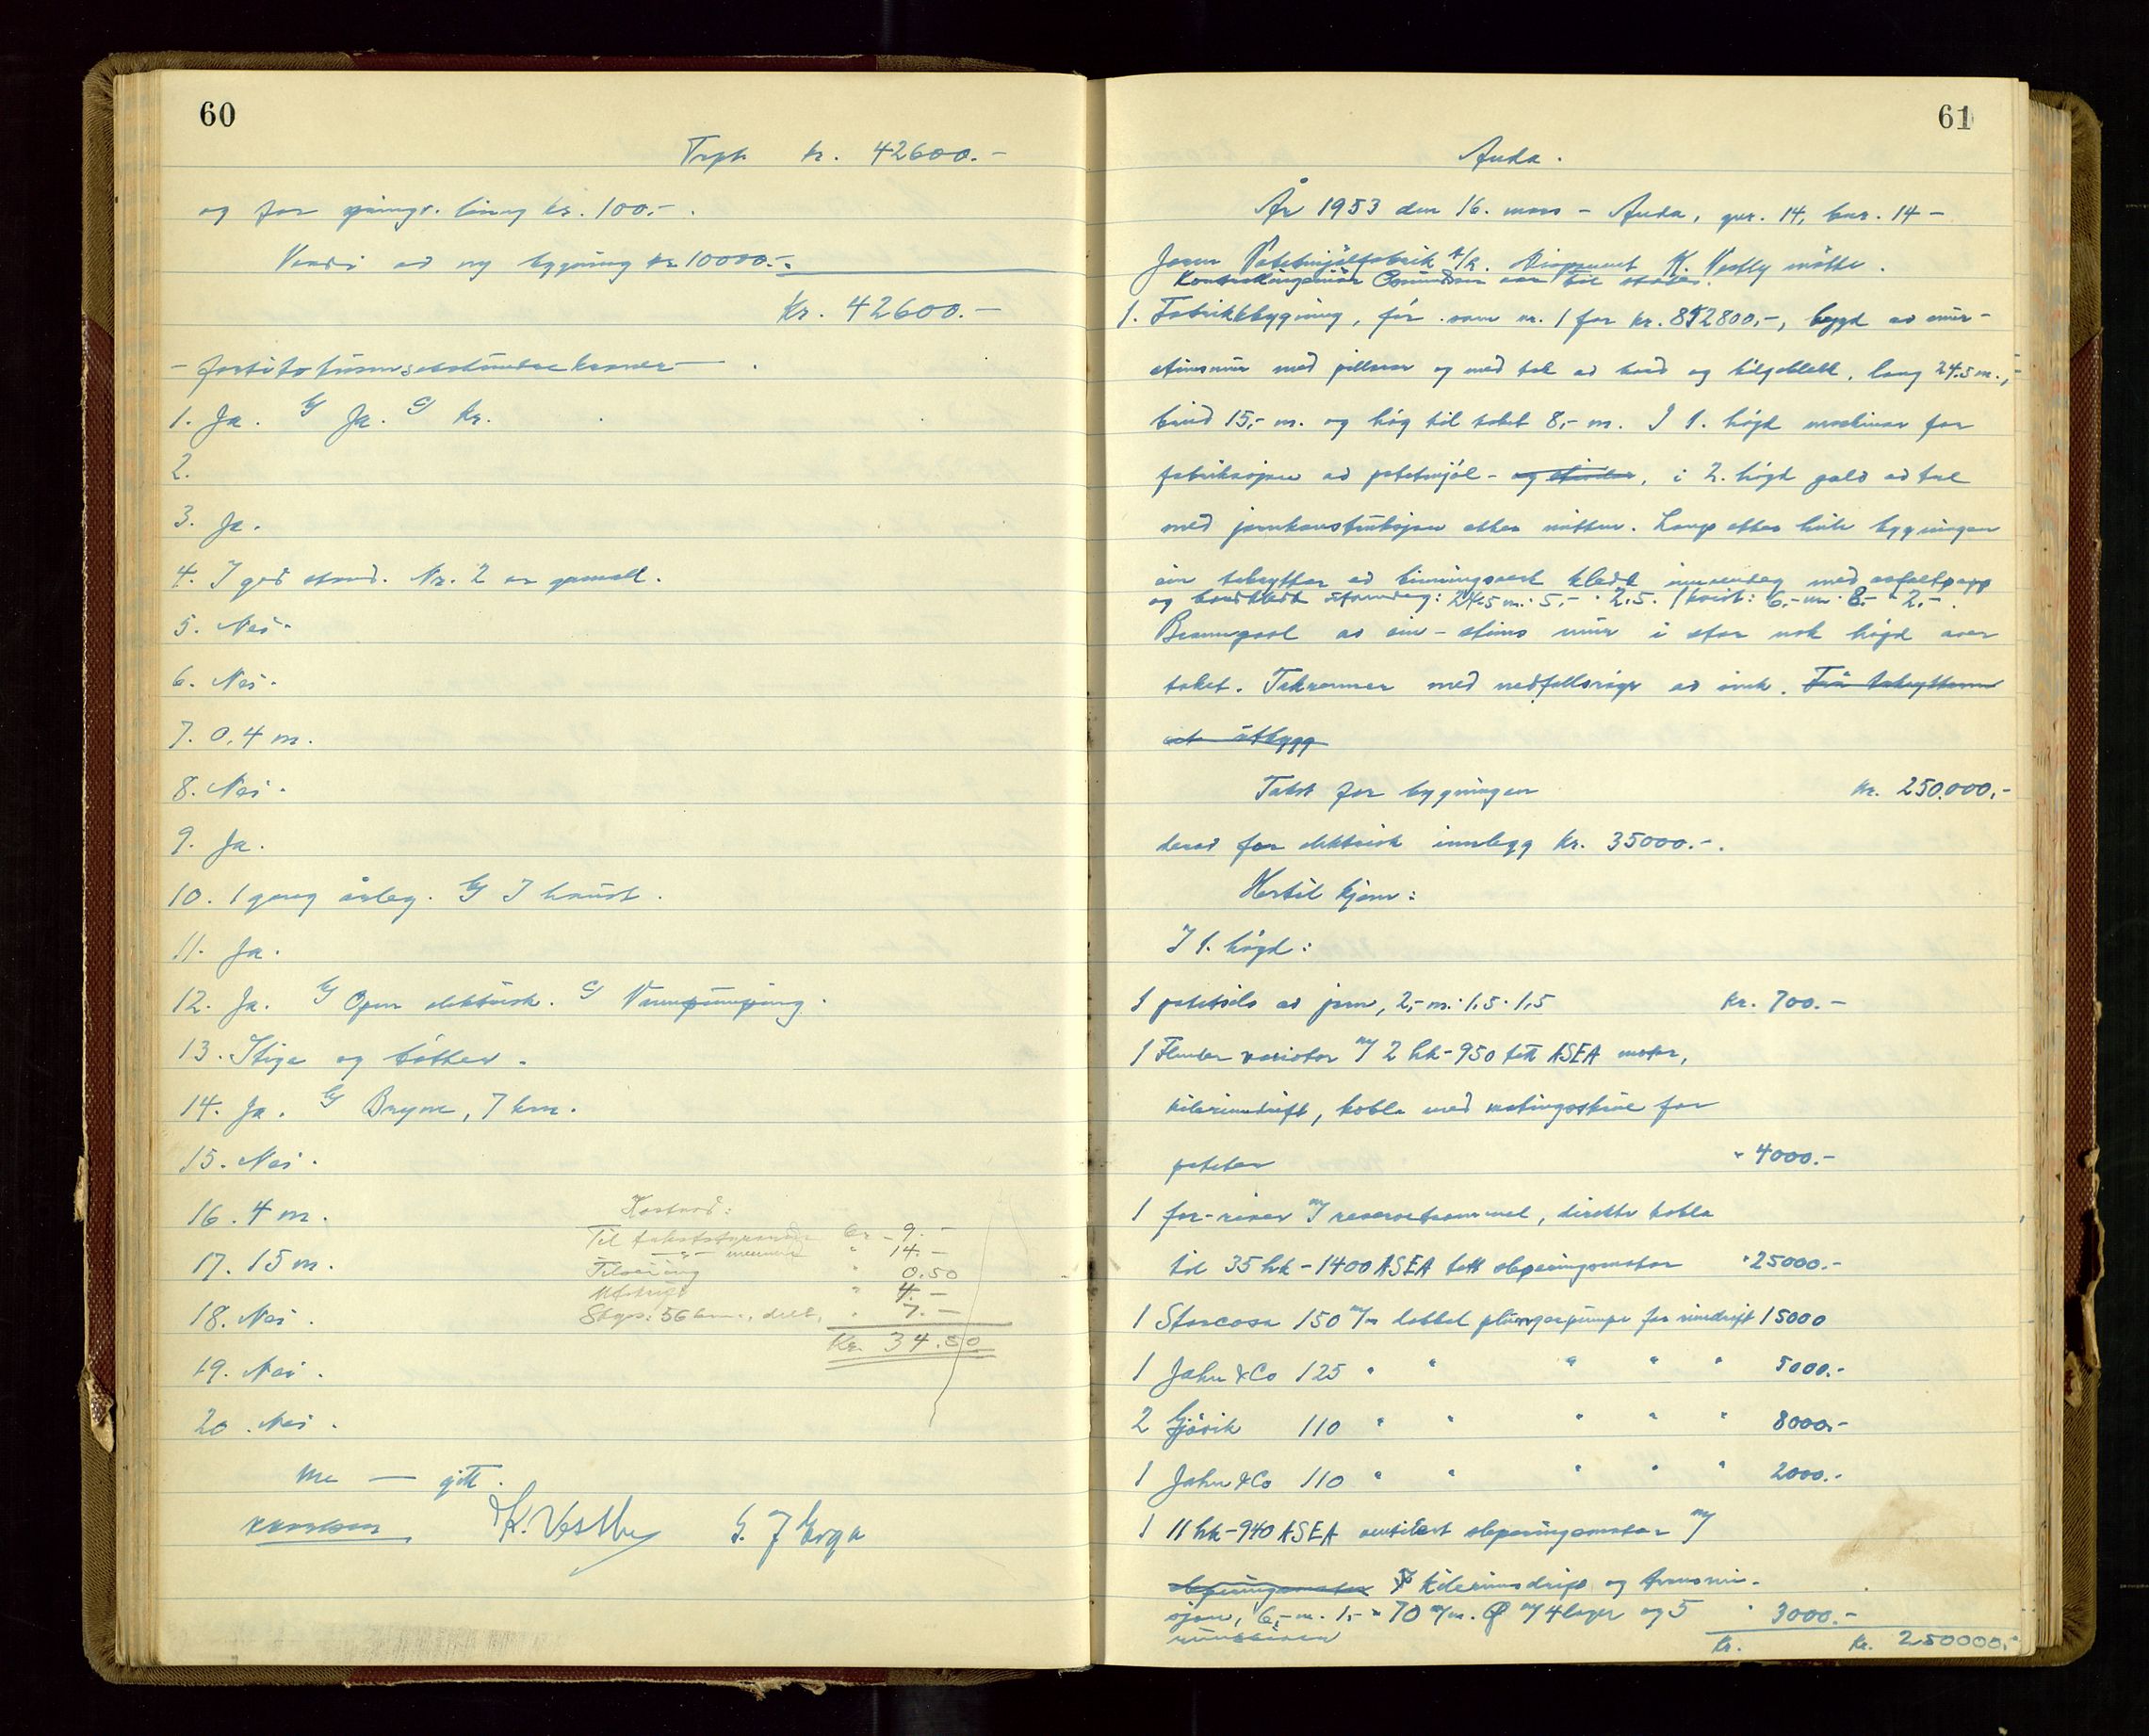 60
Trpk kr. 42600.-
og for kr. 100.-.
Verdi av ny bygning kr. 10000.-
Kr. 42600.-
- førtitotusensekshundre kroner -
1. Ja. b/ Ja. c/ kr.
2.
3. Ja.
4. I god stand. Nr. 2 er gamall.
5. Nei.
6. Nei.
7. 0,4 m.
8. Nei.
9. Ja.
10. 1 gong årleg. b/ I haust.
11. Ja.
12. Ja. b/ Open elektrisk. c/ Vannpumping.
13. Stige og bøtter.
14. Ja. b/ Bryne, 7 km.
15. Nei.
16. 4 m.
17. 15 m.
18. Nei.
19. Nei.
20. Nei.
Kostnad:
Til takststyrar kr. 9.-
-"- " 14.-
" 0,50
Utskrift " 4.-
Skyss: 56 km., delt, " 7.-
Kr. 34.50
Me — gjitt.
K. Vestly G. J Erga
61
Auda.
År 1953 den 16. mars - Auda, gnr. 14, bnr. 14 -
Jæren Potetmjølfabrik A/L. Disponent K. Vestly møtte.
Kontrollingeniør var til stades.
1. Fabrikkbygning, før som nr. 1 for kr. 852800,-, bygd av mur-
steinsmur med pillarar og med tak av bord og bølgeblekk, lang 24.5 m.,
breid 15,- m. og høg til taket 8,- m. I 1. høgd maskinar for
fabrikasjon av potetmjøl - og , i 2. høgd golv av tre
med jernkonstruksjon etter midten. Langs etter heile bygningen
ein takryttar av bindingsverk kledt innvendeg med asfaltpapp
og bordkledt utvendeg: 24.5 m. · 5,- · 2,5. 1 kvist: 6,- m · 8,- · 2,-.
Branngavl av ein-steins mur i stor nok høgd over
taket. Takrenner med nedfallsrøyr av sink. Frå takrytteren
eit utbygg
Takst for bygningen kr. 250.000,-
derav for elektrisk innlegg kr. 35000.-.
Hertil kjem:
I 1. høgd:
1 potetsilo av jern, 2,- m. · 1,5 · 1,5 kr. 700.-
1 Flender variator m/ 2 hk - 950 tett ASEA motor,
kilereimdrift, kobla med matingsskrue for
poteter " 4000.-
1 for-rivar m/ reservetrommel, direkte kobla
til 35 hk - 1400 ASEA tett sleperingsmotor " 25000.-
1 Starcosa 150 m/m dobbel plungerpumpe for reimdrift 15000
1 Jahn & Co 125 " " " " " 5000.-
2 Gjøvik 110 " " " " " 8000.-
1 Jahn & Co 110 " " " " " 2000.-
1 11 hk - 940 ASEA ventilert sleperingsmotor m/
sleperingsmotor kilereimsdrift og transmi-
sjon, 6,- m. 1,- " 70 m/m. Ø m/ 4 lager og 5 " 3000.-
reimskiver
Kr. Kr. 250000,-